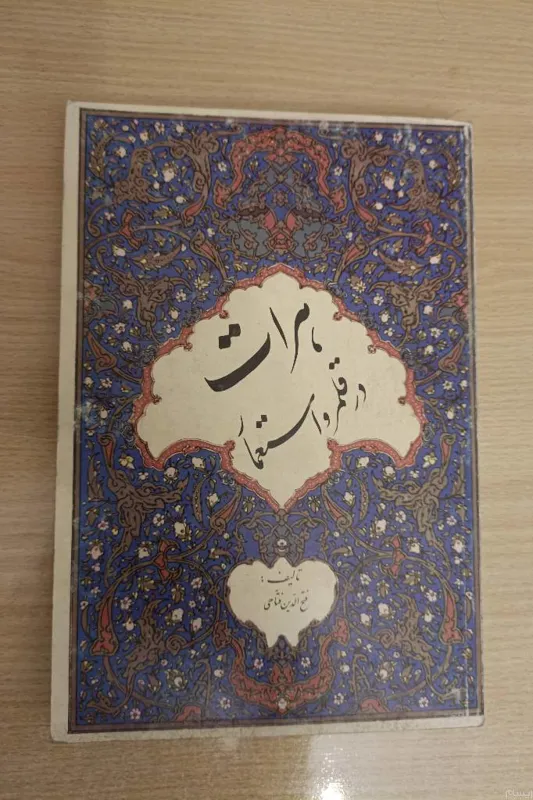 هرات
در قلمرو استعمار
تالیف :
فتح الدین فتاحی